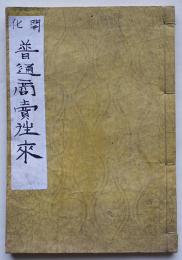 開化
普通商賣往來